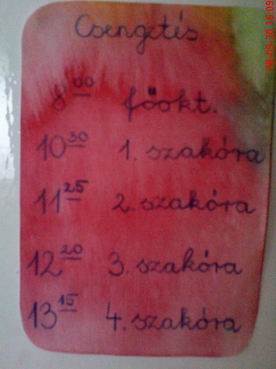 Csengetés
8⁰⁰ főokt.
10³⁰ 1. szakóra
11²⁵ 2. szakóra
12²⁰ 3. szakóra
13¹⁵ 4. szakóra